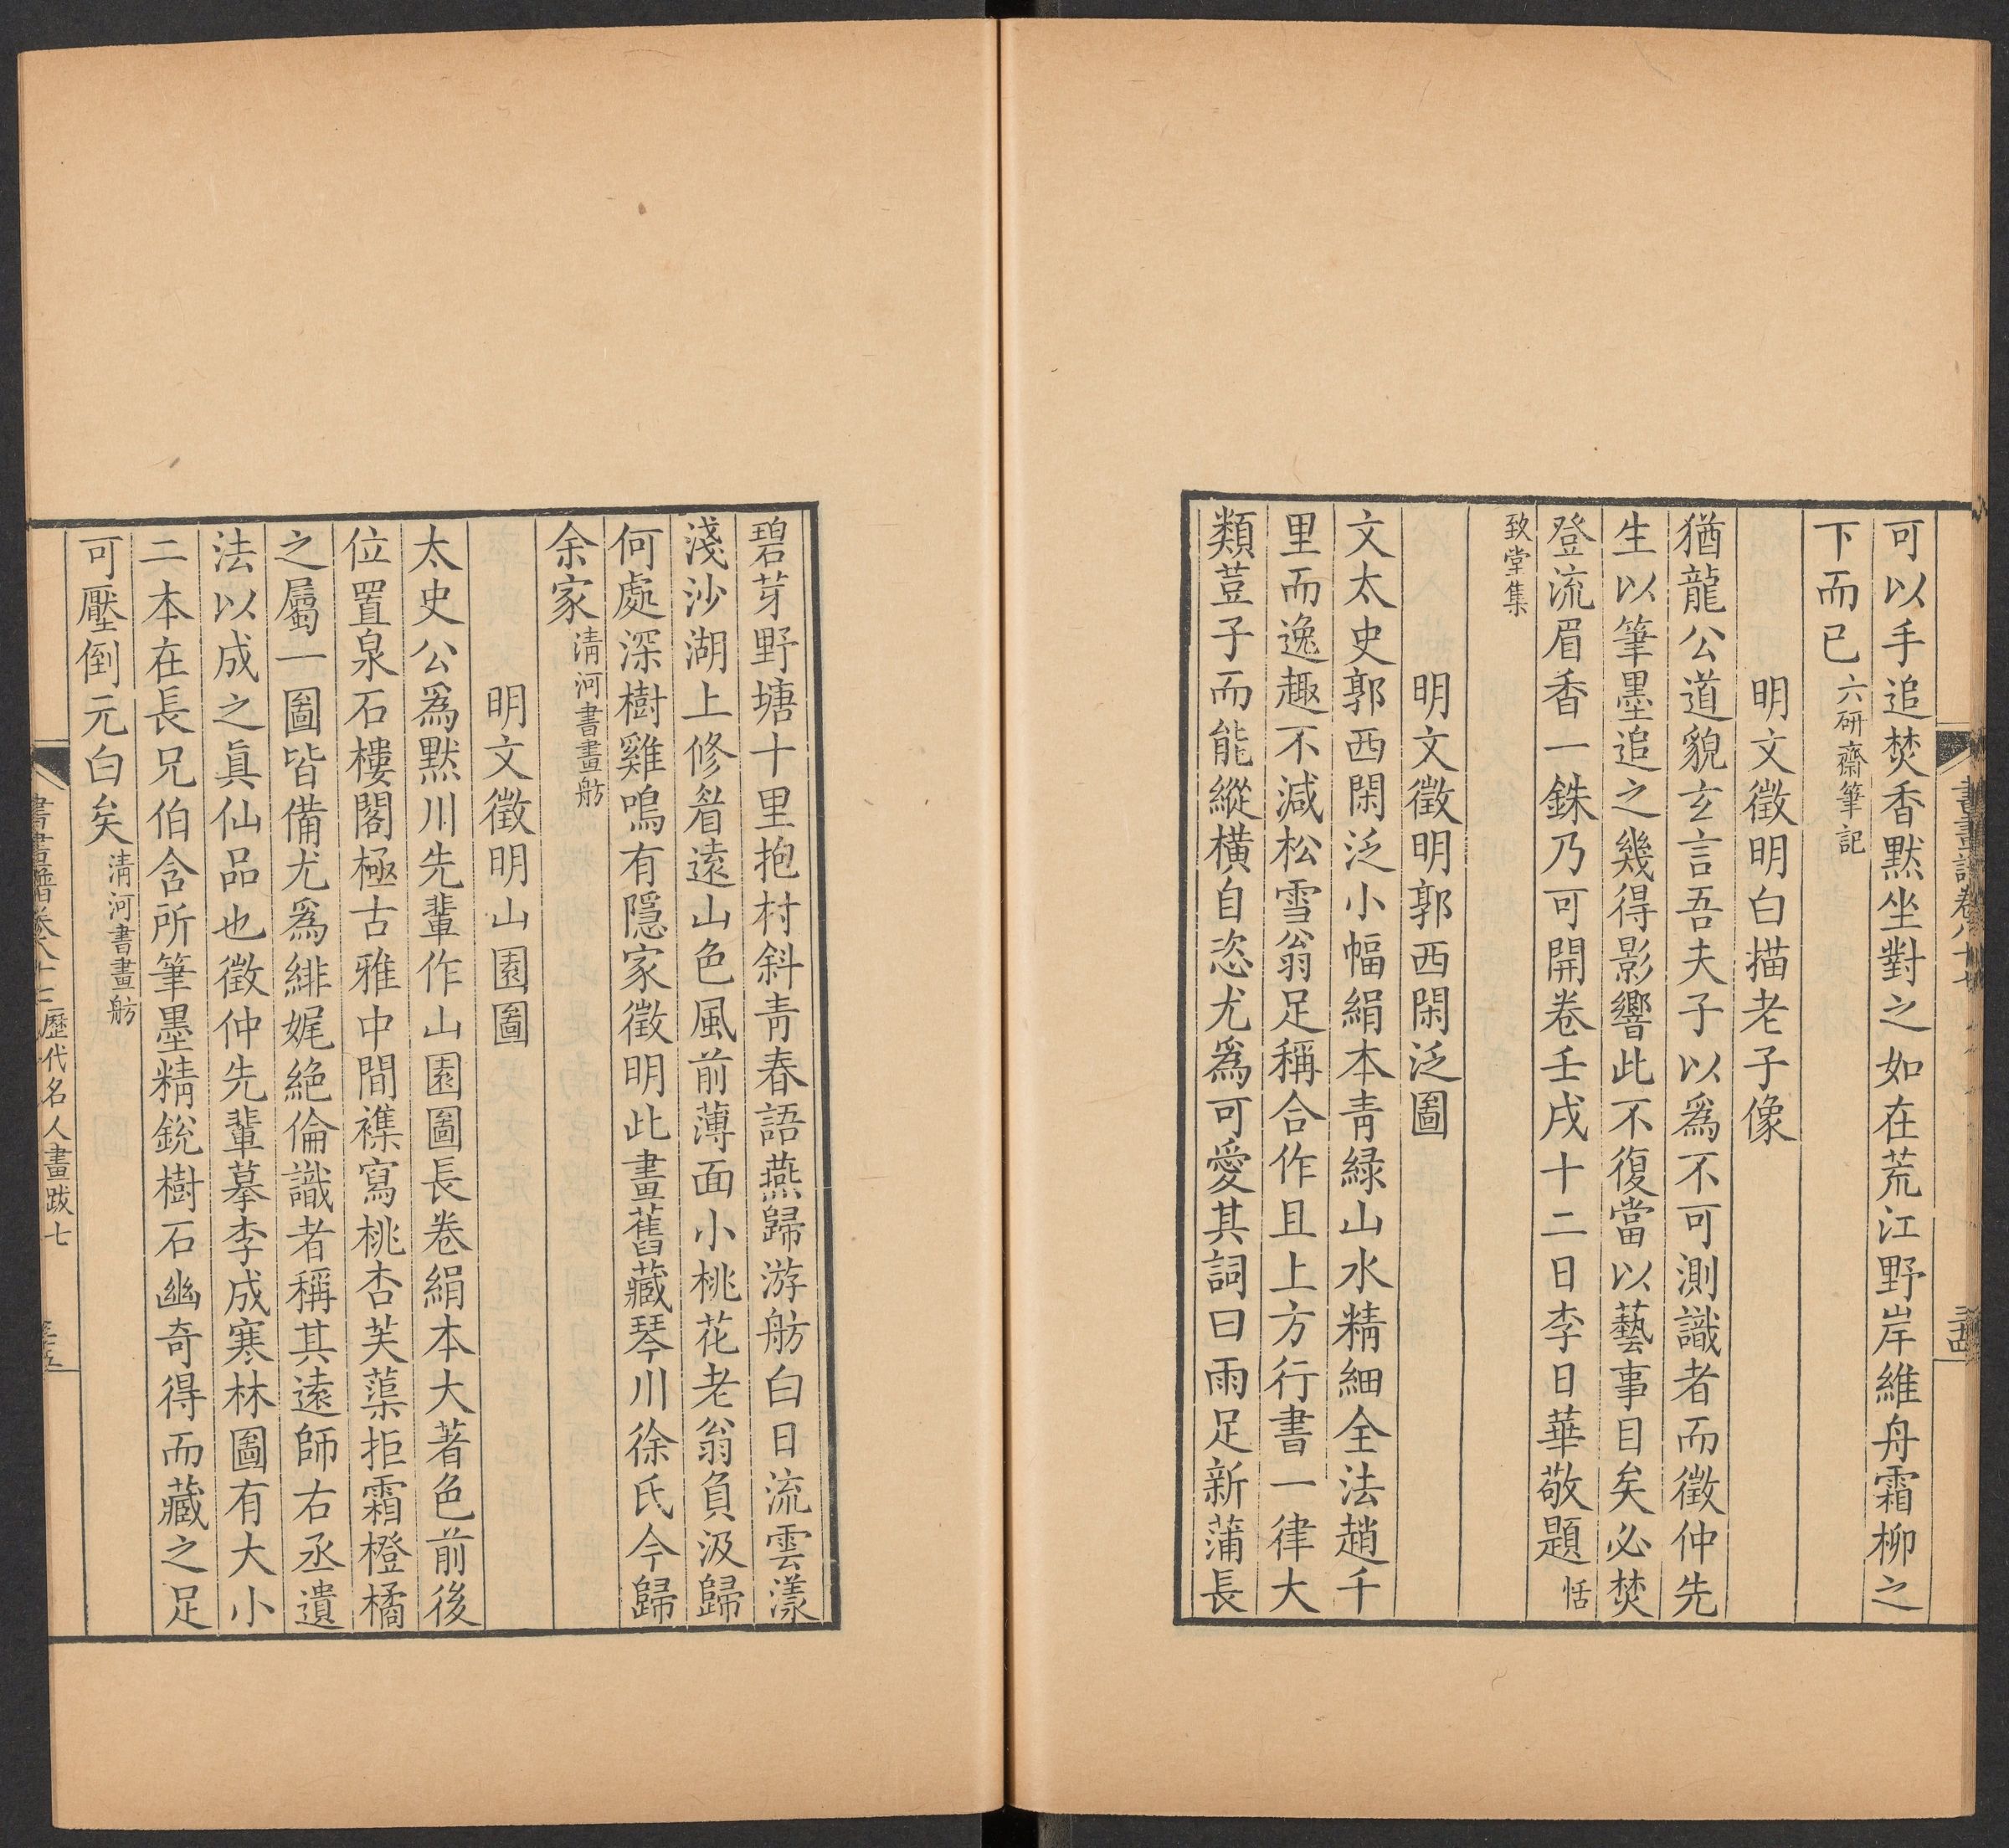 可以手追焚香默坐對之如在荒江野岸維舟霜柳之
下而已六研齋筆記
明文徵明白描老子像
猶龍公道貌玄言吾夫子以爲不可測識者而徵仲先
生以筆墨追之幾得影響此不復當以藝事目矣必焚
登流眉香一銖乃可開卷壬戌十二日李日華敬題恬
致堂集
明文徵明郭西閑泛圖
文太史郭西閑泛小幅絹本青緑山水精細全法趙千
里而逸趣不減松雪翁足稱合作且上方行書一律大
類荳子而能縱橫自恣尤爲可愛其詞曰雨足新蒲長
碧芽野塘十里抱村斜青春語燕歸游舫白日流雲漾
淺沙湖上修眉遠山色風前薄面小桃花老翁負汲歸
何處深樹雞鳴有隱家徵明此畫舊藏琴川徐氏今歸
余家清河書畫舫
明文徵明山園圖
太史公爲默川先輩作山園圖長卷絹本大著色前後
位置泉石樓閣極古雅中間襍寫桃杏芙蕖拒霜橙橘
之屬一圖皆備尤爲緋娓絶倫識者稱其遠師右丞遺
法以成之真仙品也徵仲先輩摹李成寒林圖有大小
二本在長兄伯含所筆墨精銳樹石幽奇得而藏之足
可壓倒元白矣清河書畫舫
歷代名人畫跋七